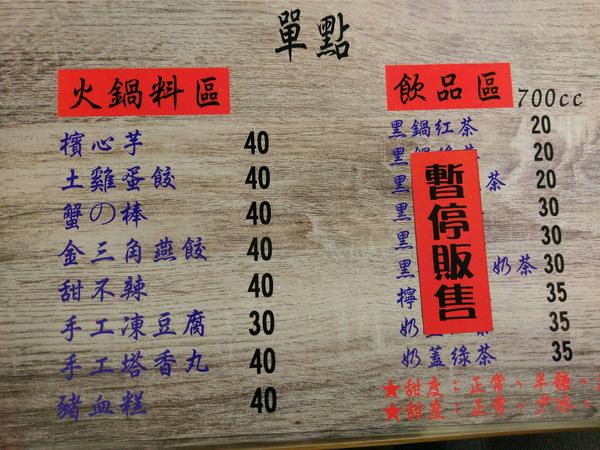 單點
火鍋料區
檳心芋 40
土雞蛋餃 40
蟹の棒 40
金三角燕餃 40
甜不辣 40
手工凍豆腐 30
手工塔香丸 40
豬血糕 40
飲品區 700cc
黑鍋紅茶 20
黑 20
黑 茶 20
黑 30
黑 30
黑 奶茶 30
檸 35
奶 35
奶蓋綠茶 35
暫停販售
★甜度：正常、半糖、
★甜度：正常、少冰、